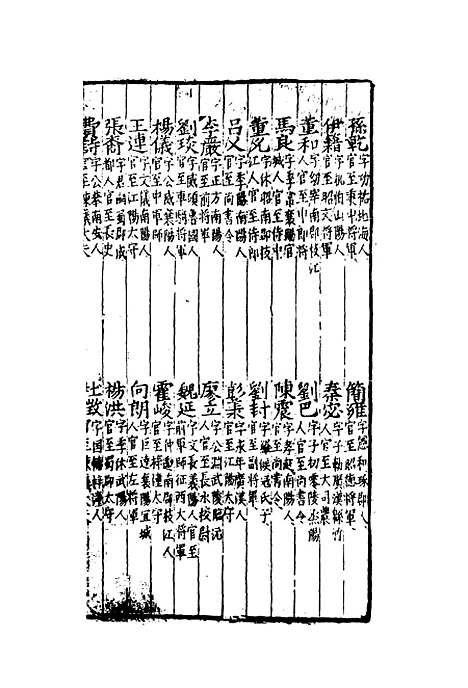 孫乾 字功祐北海人官至秉中將軍
簡雍 字憲和琢郡人官至昭德將軍
伊籍 字机伯山陽人官至昭文將軍
秦宓 字子勑廣漢緜竹人官至大司農
董和 字幼宰南郡枝江人官至中郎將
劉巴 字子初零陵烝陽人官至尚書令
馬良 字季常襄陽宜城人官至侍中
陳震 字孝起南陽人官至尚書令
董允 字休昭南郡枝江人官至侍郎
劉封 羅候寇氏子官至副將軍
呂乂 字季陽南陽人官至尚書令
彭羕 字永年廣漢人官至江陽太守
李嚴 字正方南陽人官至前將軍
廖立 字公淵武陵臨沅人官至長水校尉
劉琰 字威碩魯國人官至車騎將軍
魏延 字文長義陽人官至前軍師征西大將軍
楊儀 字公威襄陽人官至中軍師
霍峻 字仲邈南郡枝江人官至梓潼太守
王連 字文儀南陽人官至江陽太守
向朗 字巨達襄陽宜城人官至左將軍
張裔 字君嗣蜀郡成都人官至長史
楊洪 字季休武陽人官至蜀郡太守
費詩 字公舉南安人官至諫議大夫
杜微 字國輔梓潼人